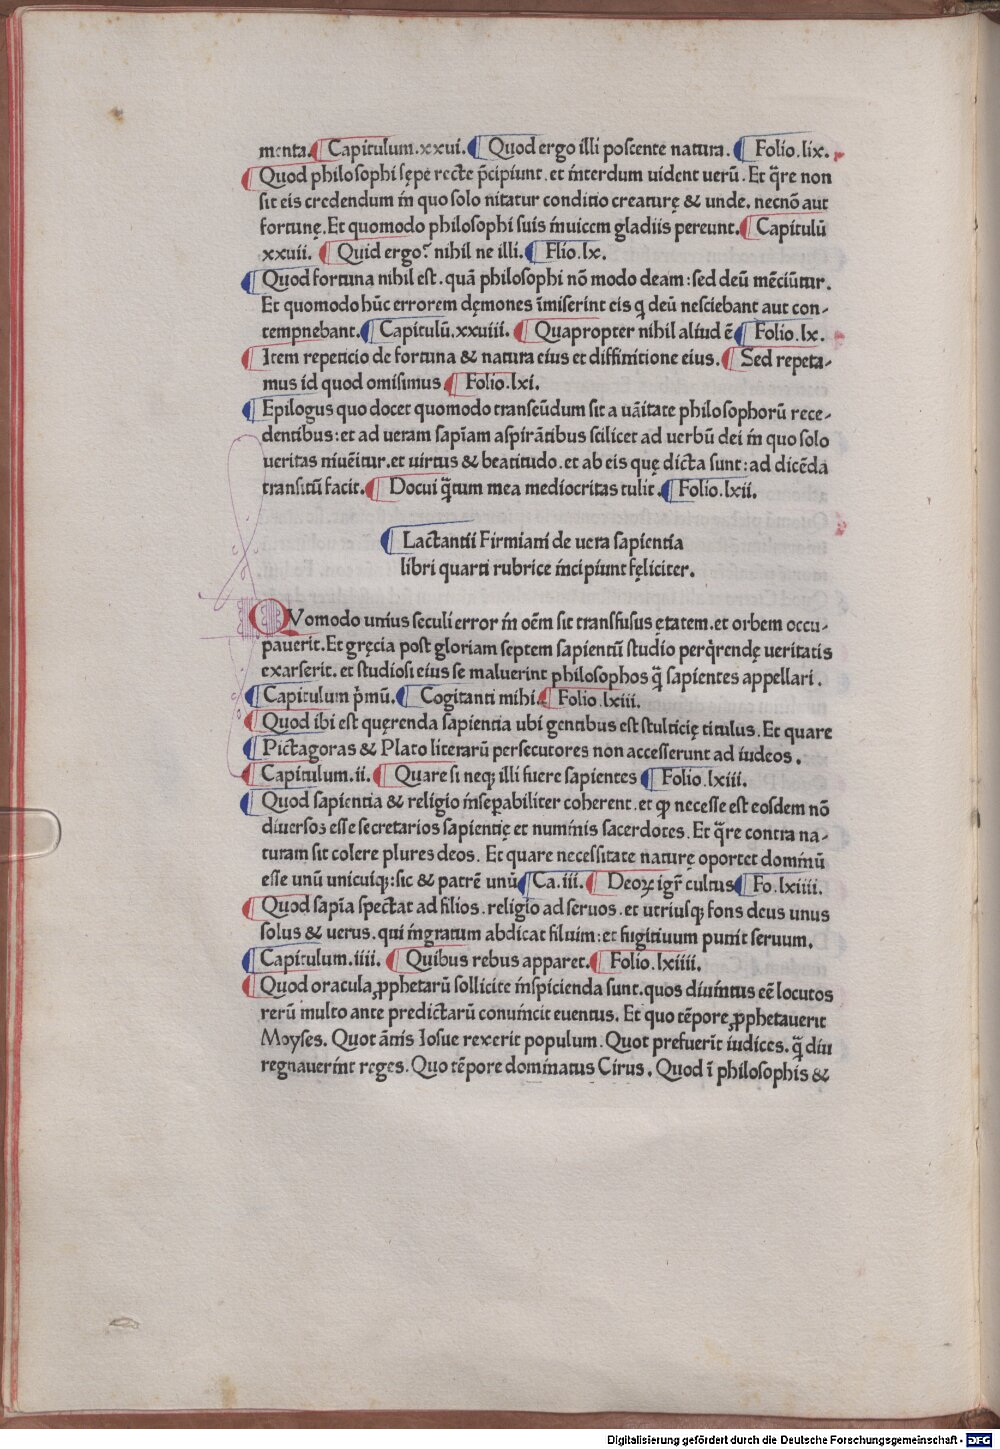 menta. Capitulum.xxvi. Quod ergo illi poscente natura. Folio.lix.
Quod philosophi sępe recte p̄cipiunt.et interdum uident uerū. Et q̄re non
sit eis credendum in quo solo nitatur conditio creaturę & unde. necnō aut
fortunę. Et quomodo philosophi suis inuicem gladiis pereunt. Capitulū
xxvii. Quid ergo? nihil ne illi. Flio.lx.
Quod fortuna nihil est. quā philosophi nō modo deam: sed deū mēciūtur.
Et quomodo hūc errorem dęmones īmiserint eis q deū nesciebant aut con-
tempnebant. Capitulū.xxviii. Quapropter nihil aliud ē Folio.lx.
Item repeticio de fortuna & natura eius et diffinitione eius. Sed repeta-
mus id quod omisimus Folio.lxi.
Epilogus quo docet quomodo transeūdum sit a uāitate philosophorū rece-
dentibus: et ad ueram sapīam aspirātibus scilicet ad uerbū dei in quo solo
ueritas niuēitur. et uirtus & beatitudo. et ab eis quę dicta sunt: ad dicēda
transitū facit. Docui q̄tum mea mediocritas tulit. Folio.lxii.
Lactantii Firmiani de uera sapientia
libri quarti rubrice incipiunt fęliciter.
QVomodo unius seculi error in oēm sit transfusus ętatem. et orbem occu-
pauerit. Et gręcia post gloriam septem sapientū studio perq̄rendę ueritatis
exarserit. et studiosi eius se maluerint philosophos q̄ sapientes appellari.
Capitulum p̄mū. Cogitanti mihi. Folio.lxiii.
Quod ibi est quęrenda sapientia ubi gentibus est stulticię titulus. Et quare
Pictagoras & Plato literarū persecutores non accesserunt ad iudeos.
Capitulum.ii. Quare si neqꝫ illi fuere sapientes Folio.lxiii.
Quod sapientia & religio insepabiliter coherent. et qp necesse est eosdem nō
diuersos esse secretarios sapientię et numinis sacerdotes. Et q̄re contra na-
turam sit colere plures deos. Et quare necessitate naturę oportet dominū
esse unū unicuiqꝫ: sic & patrē unū Ca.iii. Deoꝝ igr̄ cultus Fo.lxiiii.
Quod sapīa spectat ad filios. religio ad seruos. et utriusqꝫ fons deus unus
solus & uerus. qui ingratum abdicat filuim: et fugitiuum punit seruum.
Capitulum.iiii. Quibus rebus apparet. Folio.lxiiii.
Quod oracula ꝓphetarū sollicite inspicienda sunt. quos diuinitus eē locutos
rerū multo ante predictarū conuincit euentus. Et quo tēpore ꝓphetauerit
Moyses. Quot ānis Iosue rexerit populum. Quot prefuerit iudices. q̄ diu
regnauerint reges. Quo tēpore dominatus Cirus. Quod ī philosophis &
Digitalisierung gefördert durch die Deutsche Forschungsgemeinschaft - DFG